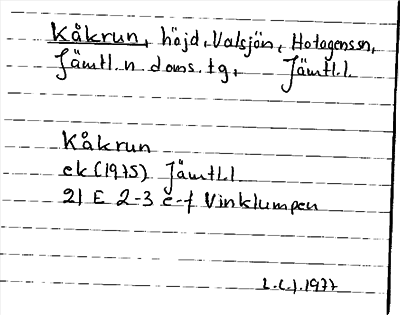 Kåkrun, höjd, Valsjön, Hotagens sn,
Jämtl. n doms. tg, Jämtl. l.
Kåkrun
ek (1975) Jämtl. l
21 E 2-3 e-f Vinklumpen
1977